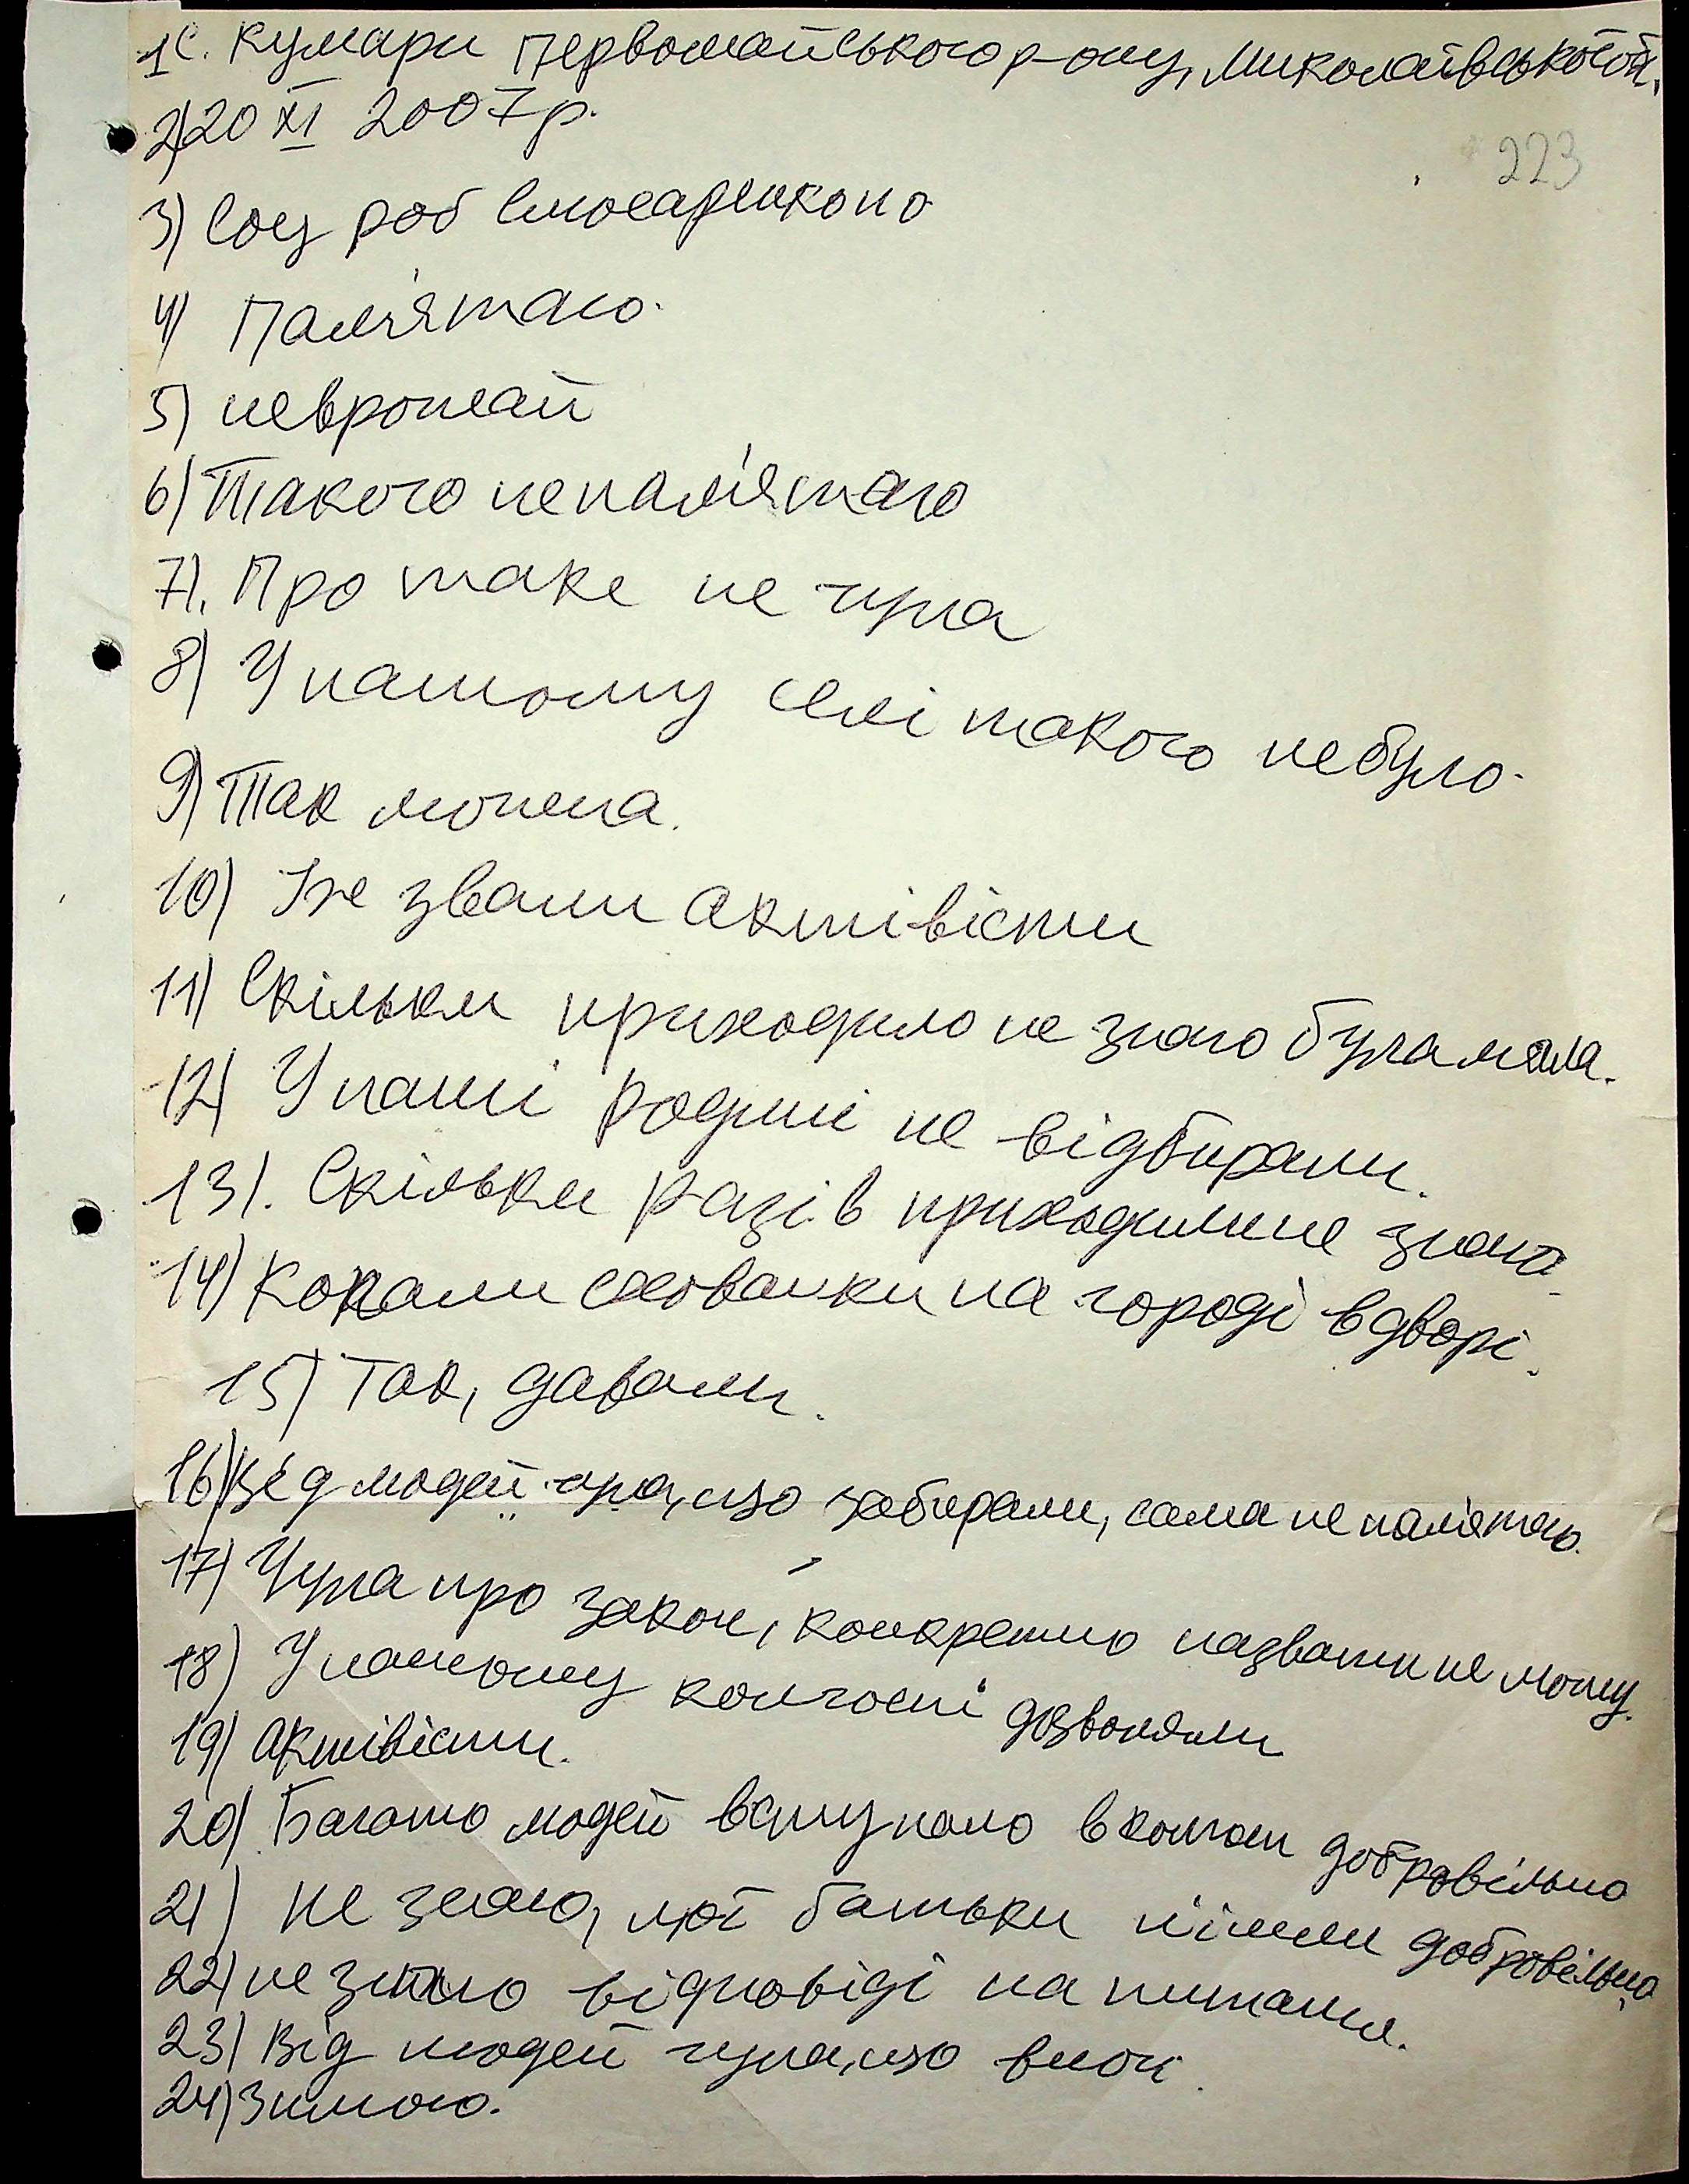 1 С. Кумари Первомайського р-ону, Миколаївської об.
2) 20 XI 2007р.
223
3) Соц роб
4) Пам'ятаю.
5) неврожай
6) Такого не пам'ятаю
7). Про таке не чула
8) У нашому селі такого не було.
9) Так можна.
10) Їхе звали актівісти
11) Скільки приходило не знаю була мала.
12) У нашій родині не відбирали.
13). Скільки разів приходили не знаю
14) Копали схованки на городі в дворі.
15) Так, давали.
16) Від людей чула, що забирали, сама не пам'ятаю.
17) Чула про закон, конкретно назвати не можу.
18) У нашому колгоспі дозволяли
19) Актівісти.
20) Багато людей вступало в колгосп добровільно
21) Не знаю, мої батьки пішли добровільно
22) не знаю відповіді на питання.
23) Від людей чула, що вночі.
24) Зимою.